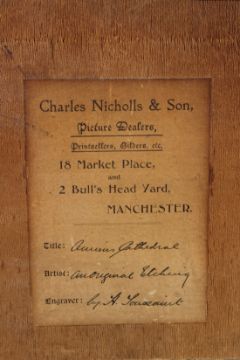 Charles Nicholls & Son,
Picture Dealers,
Printsellers, Gilders, etc.
18 Market Place,
and
2 Bull's Head Yard,
MANCHESTER.
Title: Amiens Cathedral
Artist: An Original Etching
Engraver: by H. Toussaint